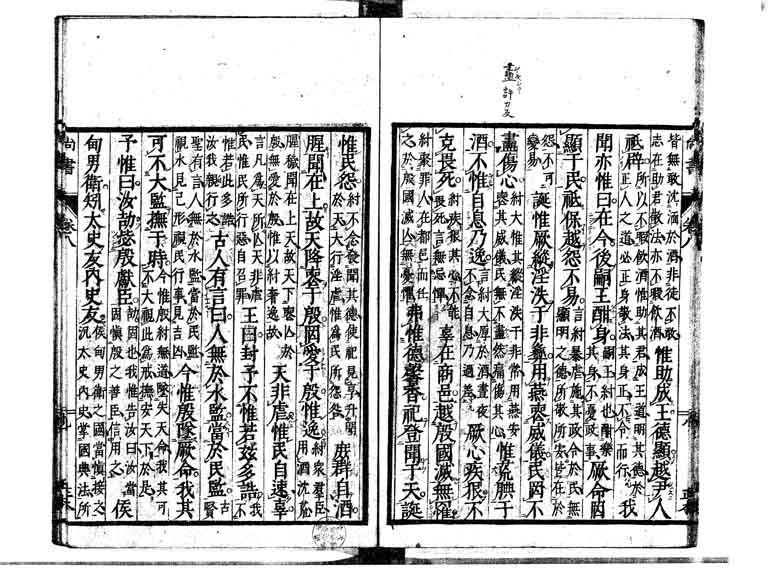 皆無敢沈湎於酒非徒不敢
志在助君敬法亦不暇飲酒
惟助成王德顯越尹人
祗辟
所以不暇飲酒惟助其君成王道明其德於
正人之道必正身敬法其身正不令而行
我
聞亦惟曰在今後嗣王酣身
嗣王紂也酣樂
其身不憂政事
厥命罔
顯于民祗保越怨不易
言紂暴虐施其政令於民無
顯明之德所敬所安皆在於
怨不可
變易
誕惟厥縱淫泆于非彝用燕喪威儀民罔不
盡傷心
紂大惟其縱淫泆于非常用燕安
喪其威儀民無不盡然痛傷其心
惟荒腆于
酒不惟自息乃逸
言紂大厚於酒晝夜
不念自息乃過差
厥心疾狠不
克畏死
紂疾狠其心不能
畏死言無忌憚
辜在商邑越殷國滅無罹
紂聚罪人在都邑而任
之於殷國滅亡無憂懼
弗惟德馨香祀登聞于天誕
尚書 卷八
惟民怨
紂不念發聞其德使祀見享升聞
於天大行淫虐惟為民所怨咎
庶群自酒
腥聞在上故天降喪于殷罔愛于殷惟逸
紂眾群臣
用酒沈荒
腥穢聞在上天故天下喪亡於
殷無愛於殷惟以紂奢逸故
天非虐惟民自速辜
言凡為天所亡天非虐
民惟民所行惡自召罪
王曰封予不惟若茲多誥
我
不
惟若此多誥
汝我親行之
古人有言曰人無於水監當於民監
古
賢
聖有言人無於水監當於民監
視水見己形視民行事見吉凶
今惟殷墜厥命我其
可不大監撫于時
今惟殷紂無道墜失天命我其可
不大視此為戒撫安天下於是
予惟曰汝劼毖殷獻臣
劼固也我惟告汝曰汝當
固慎殷之善臣信用之
侯
甸男衛矧太史友內史友
侯甸男衛之國當慎接之
況太史內史掌國典法所
尚書 卷八